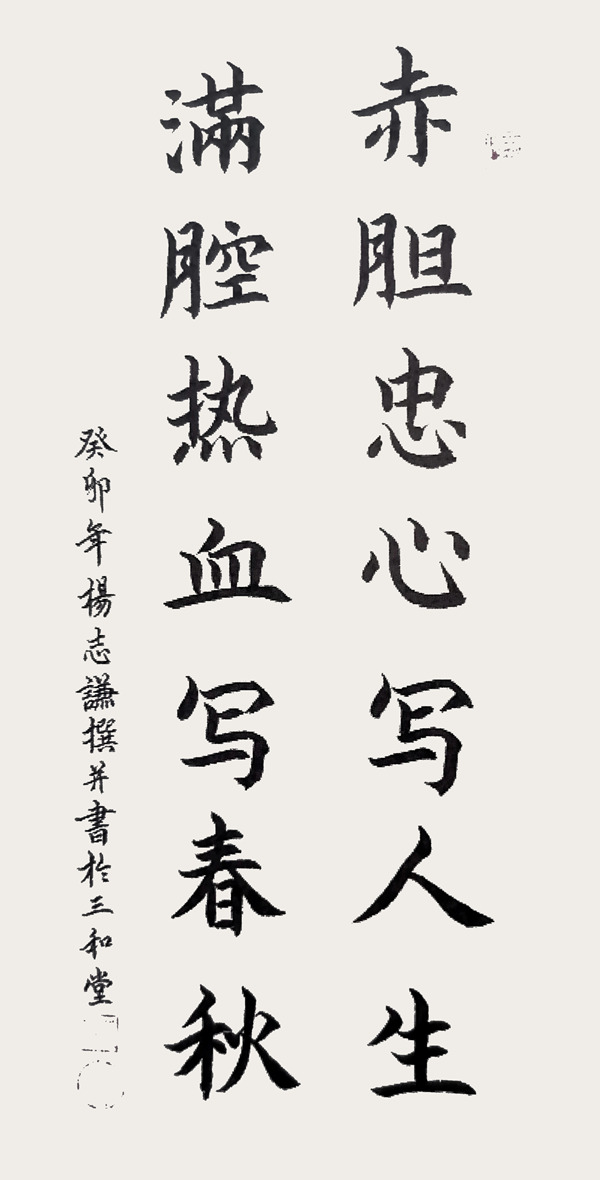 赤胆忠心写人生
满腔热血写春秋
癸卯年楊志謙撰并書於三和堂